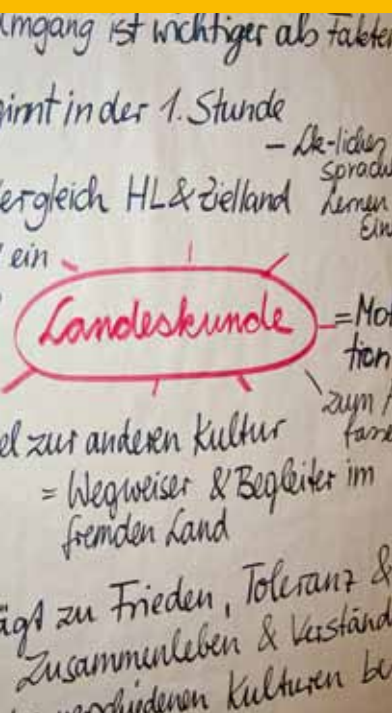 Umgang ist wichtiger als Fakten
ginnt in der 1. Stunde
- Lk-liches
Sprach
Vergleich HL & Zielland
Lernen
Ein
ein
Landeskunde
= Mot
tion
zum A
fassen
el zur anderen Kultur
= Wegweiser & Begleiter im
fremden Land
ägt zu Frieden, Toleranz &
Zusammenleben & Verständ
verschiedenen Kulturen be